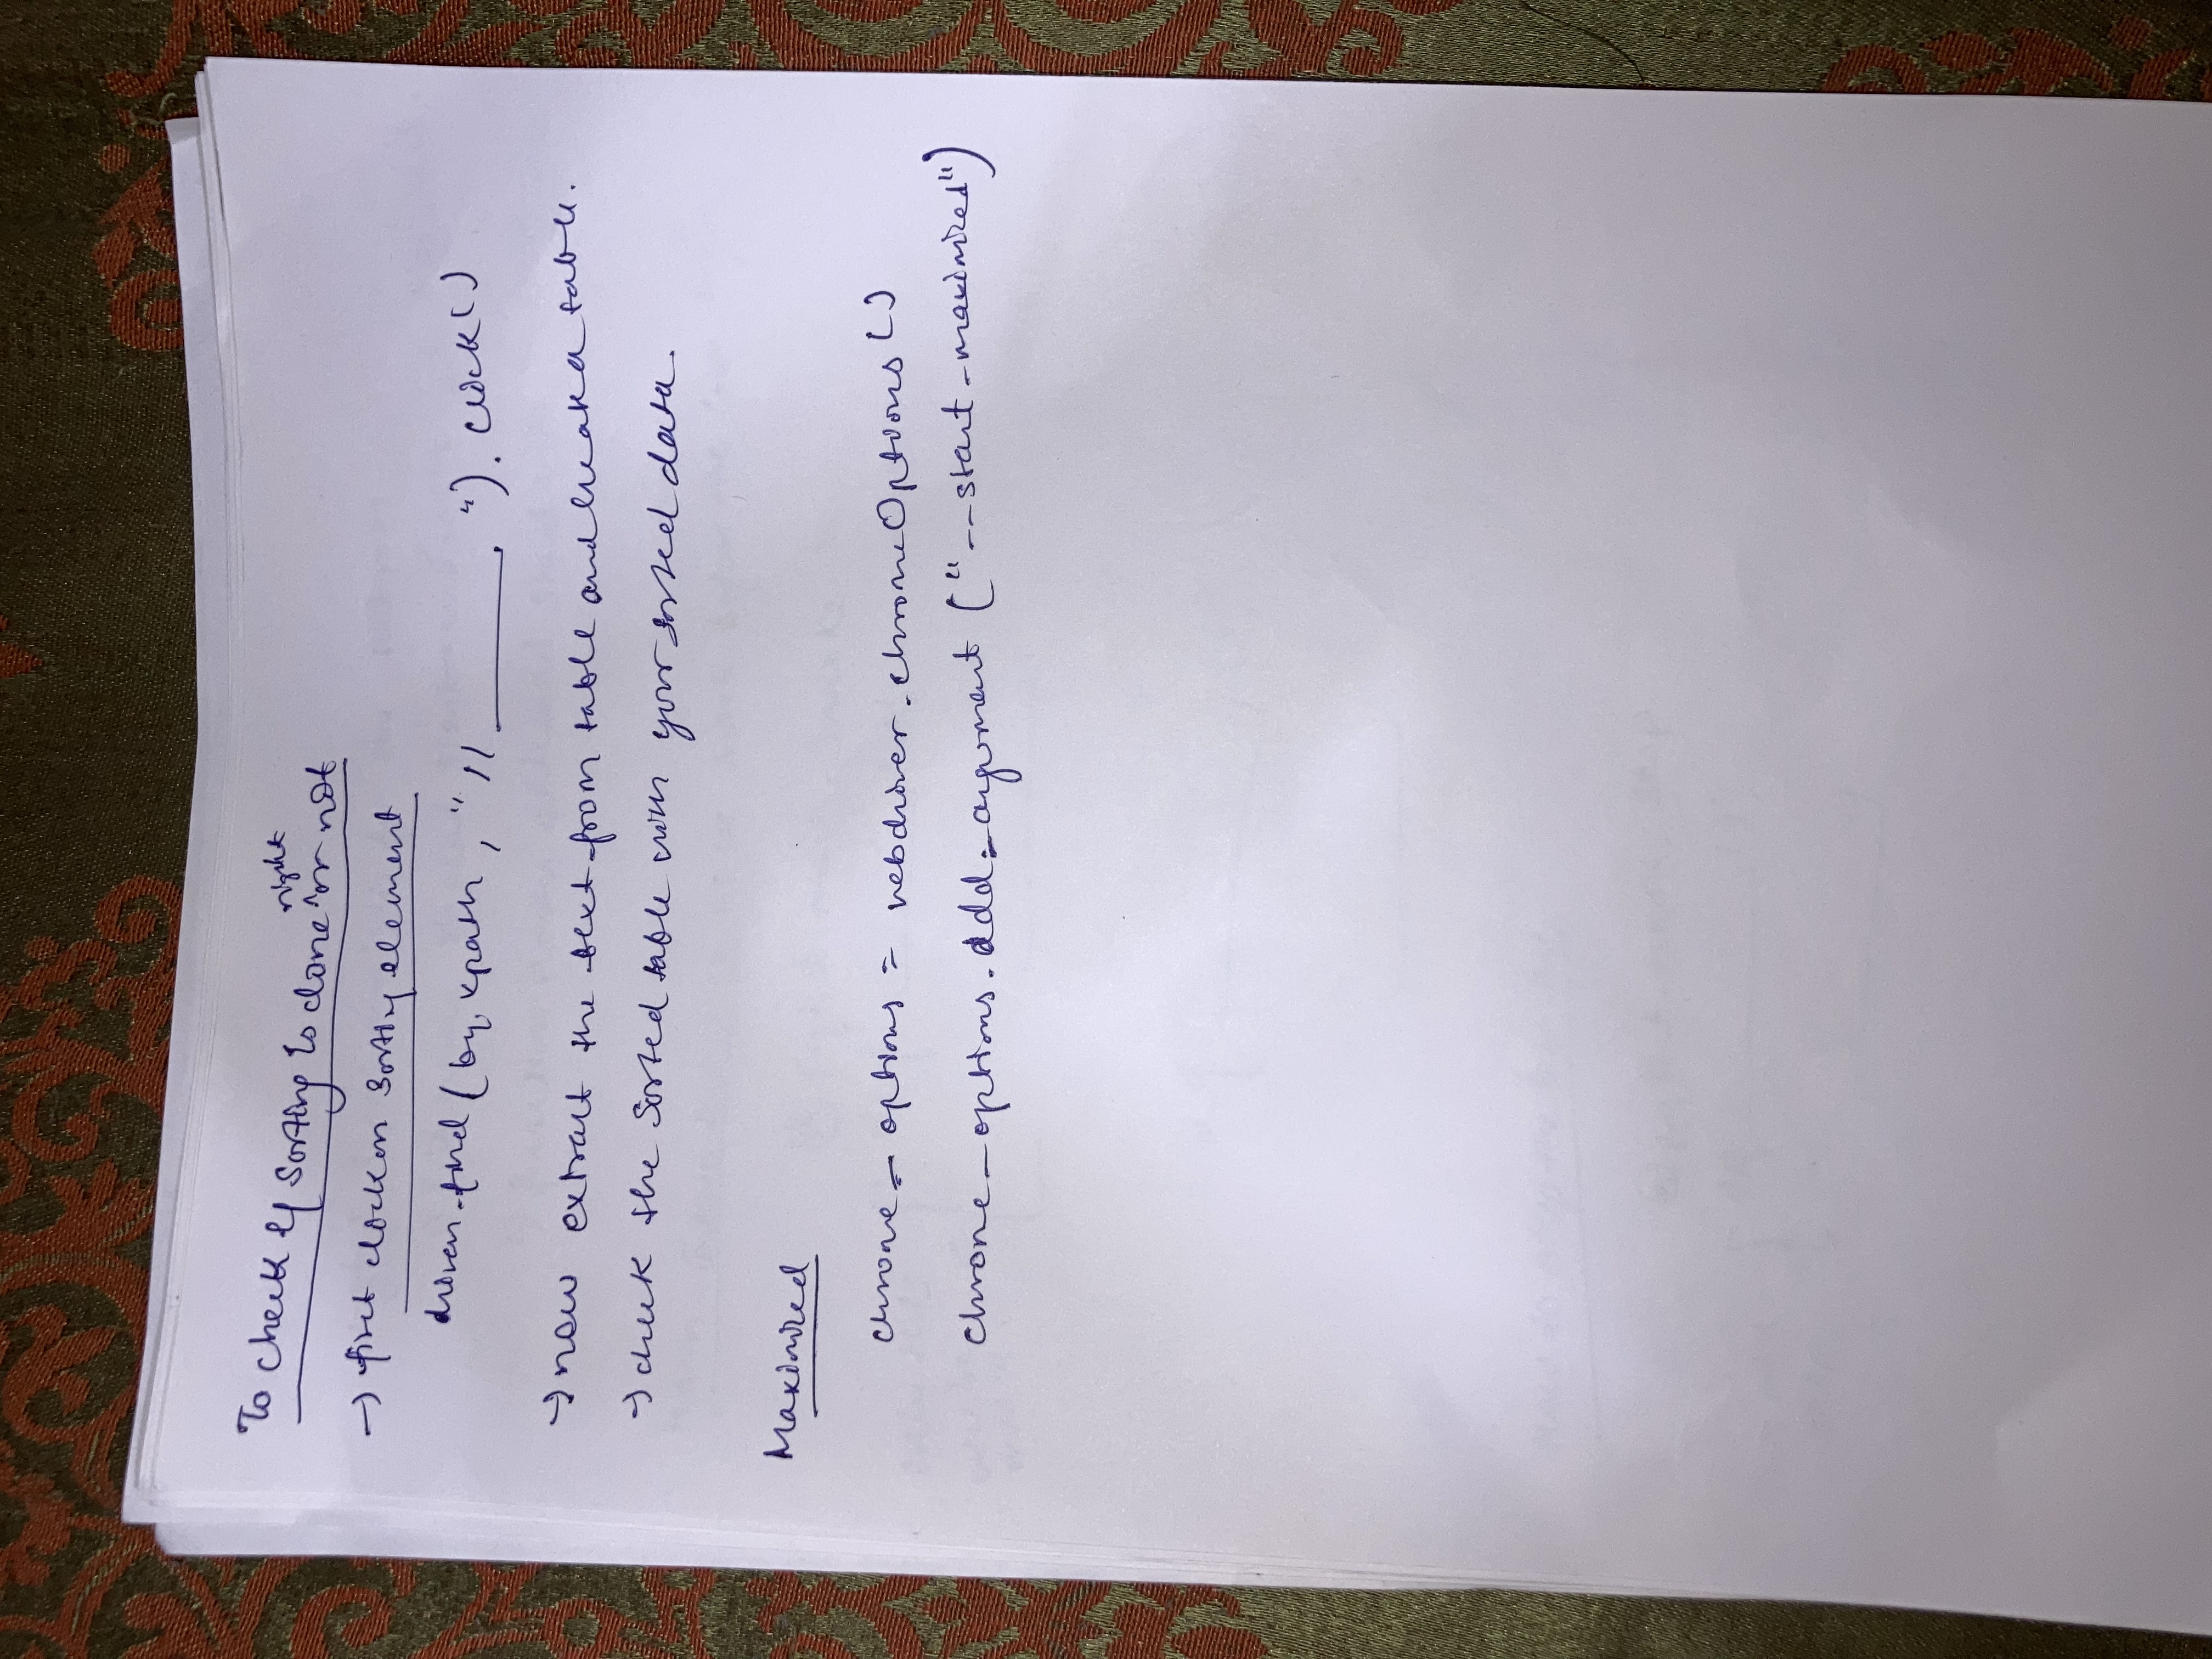 To check if Sorting is done right or not
→ first click on Sorting element
driver.find(by.xpath, "//________"). click()
→ now extract the text from table and a table.
→ check the Sorted table with your sorted data.
Maximized
chrome_options = webdriver.chromeOptions()
chrome_options.add_argument ("--start-maximized")